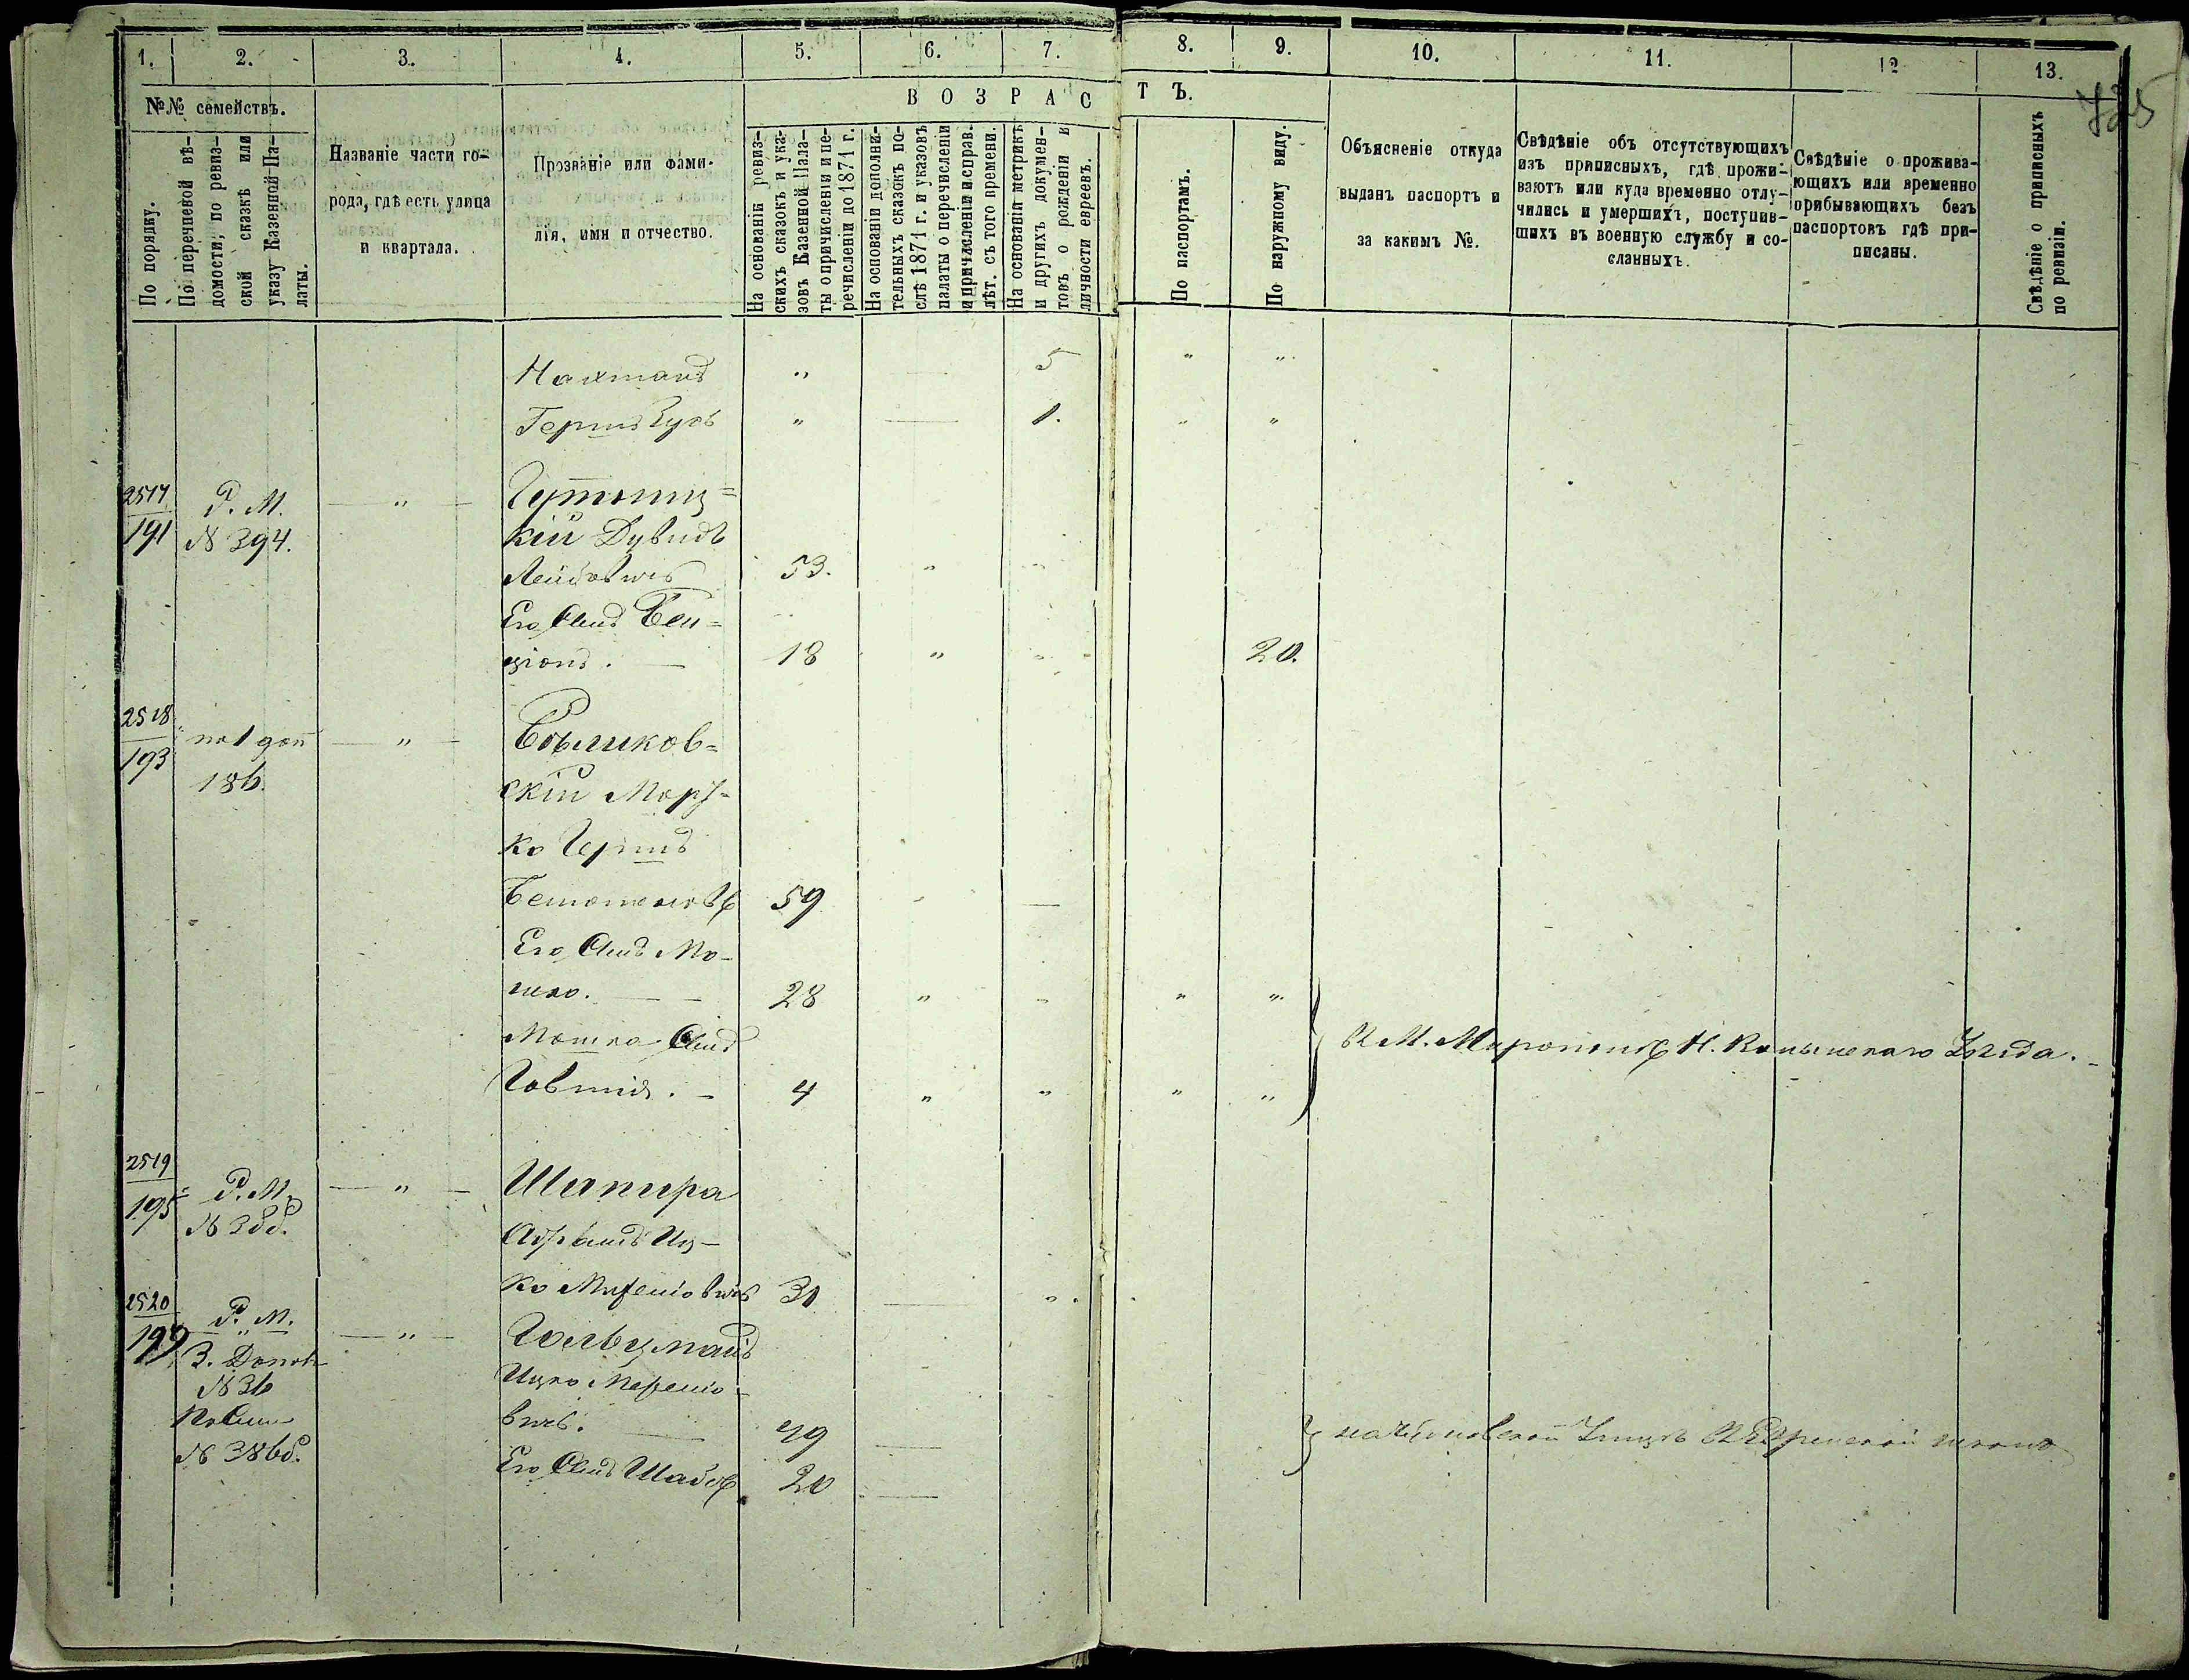 1.
2.
3.
4.
5.
6.
7.
8.
9.
10.
11.
12
13.
725
№№ семействъ.
По порядку.
По перечневой вѣ-
домости, по ревиз-
ской сказкѣ или
указу Казенной Па-
латы.
Названіе части го-
рода, гдѣ есть улица
и квартала.
Прозваніе или фами-
лія, имя и отчество.
ВОЗРАСТЪ.
На основаніи ревиз-
скихъ сказокъ и ука-
зовъ Казенной Пала-
ты о причисленіи и пе-
речисленіи до 1871 г.
На основаніи дополни-
тельныхъ сказокъ по-
слѣ 1871 г. и указовъ
палаты о перечисленіи
и причисленіи и справ.
лѣт. съ того времени.
На основаніи метрикъ
и другихъ докумен-
товъ о рожденіи и
личности евреевъ.
По паспортамъ.
По наружному виду.
Объясненіе откуда
выданъ паспортъ и
за какимъ №.
Свѣдѣніе объ отсутствующихъ
изъ приписныхъ, гдѣ прожи-
ваютъ или куда временно отлу-
чились и умершихъ, поступив-
шихъ въ военную службу и со-
сланныхъ.
Свѣдѣніе о прожива-
ющихъ или временно
прибывающихъ безъ
паспортовъ гдѣ при-
писаны.
Свѣдѣніе о приписныхъ
по ревизіи.
Нахманъ " — 5 " "
Герш Зусь " — 1. " "
2517 Р. М. — " — Гутниц=
191 № 394. кій Дувидъ
Лейбовичъ 53. " "
Его Сынъ Бен=
ціонъ. — 18 " " 20.
2518 по 1 доп — " — Бѣликов=
193 186. скій Мор
ко Гершъ
59 " —
Его Сынъ Мо-
шко. — 28 " " " "
Мошка Сынъ
Говшія. — 4 " " " "
В М. Мирополѣ Н. Волынскаго Уѣзда.
2519 Р. М. — " — Шапира
195 № Абрамъ Иц-
ко Мееровичъ 30 — "
2520 Р. М. — " — Гольцманъ
197 3. Допол
№ 36 Ицко
№ 386б. вичъ. — 49 —
Его Сынъ 20 —